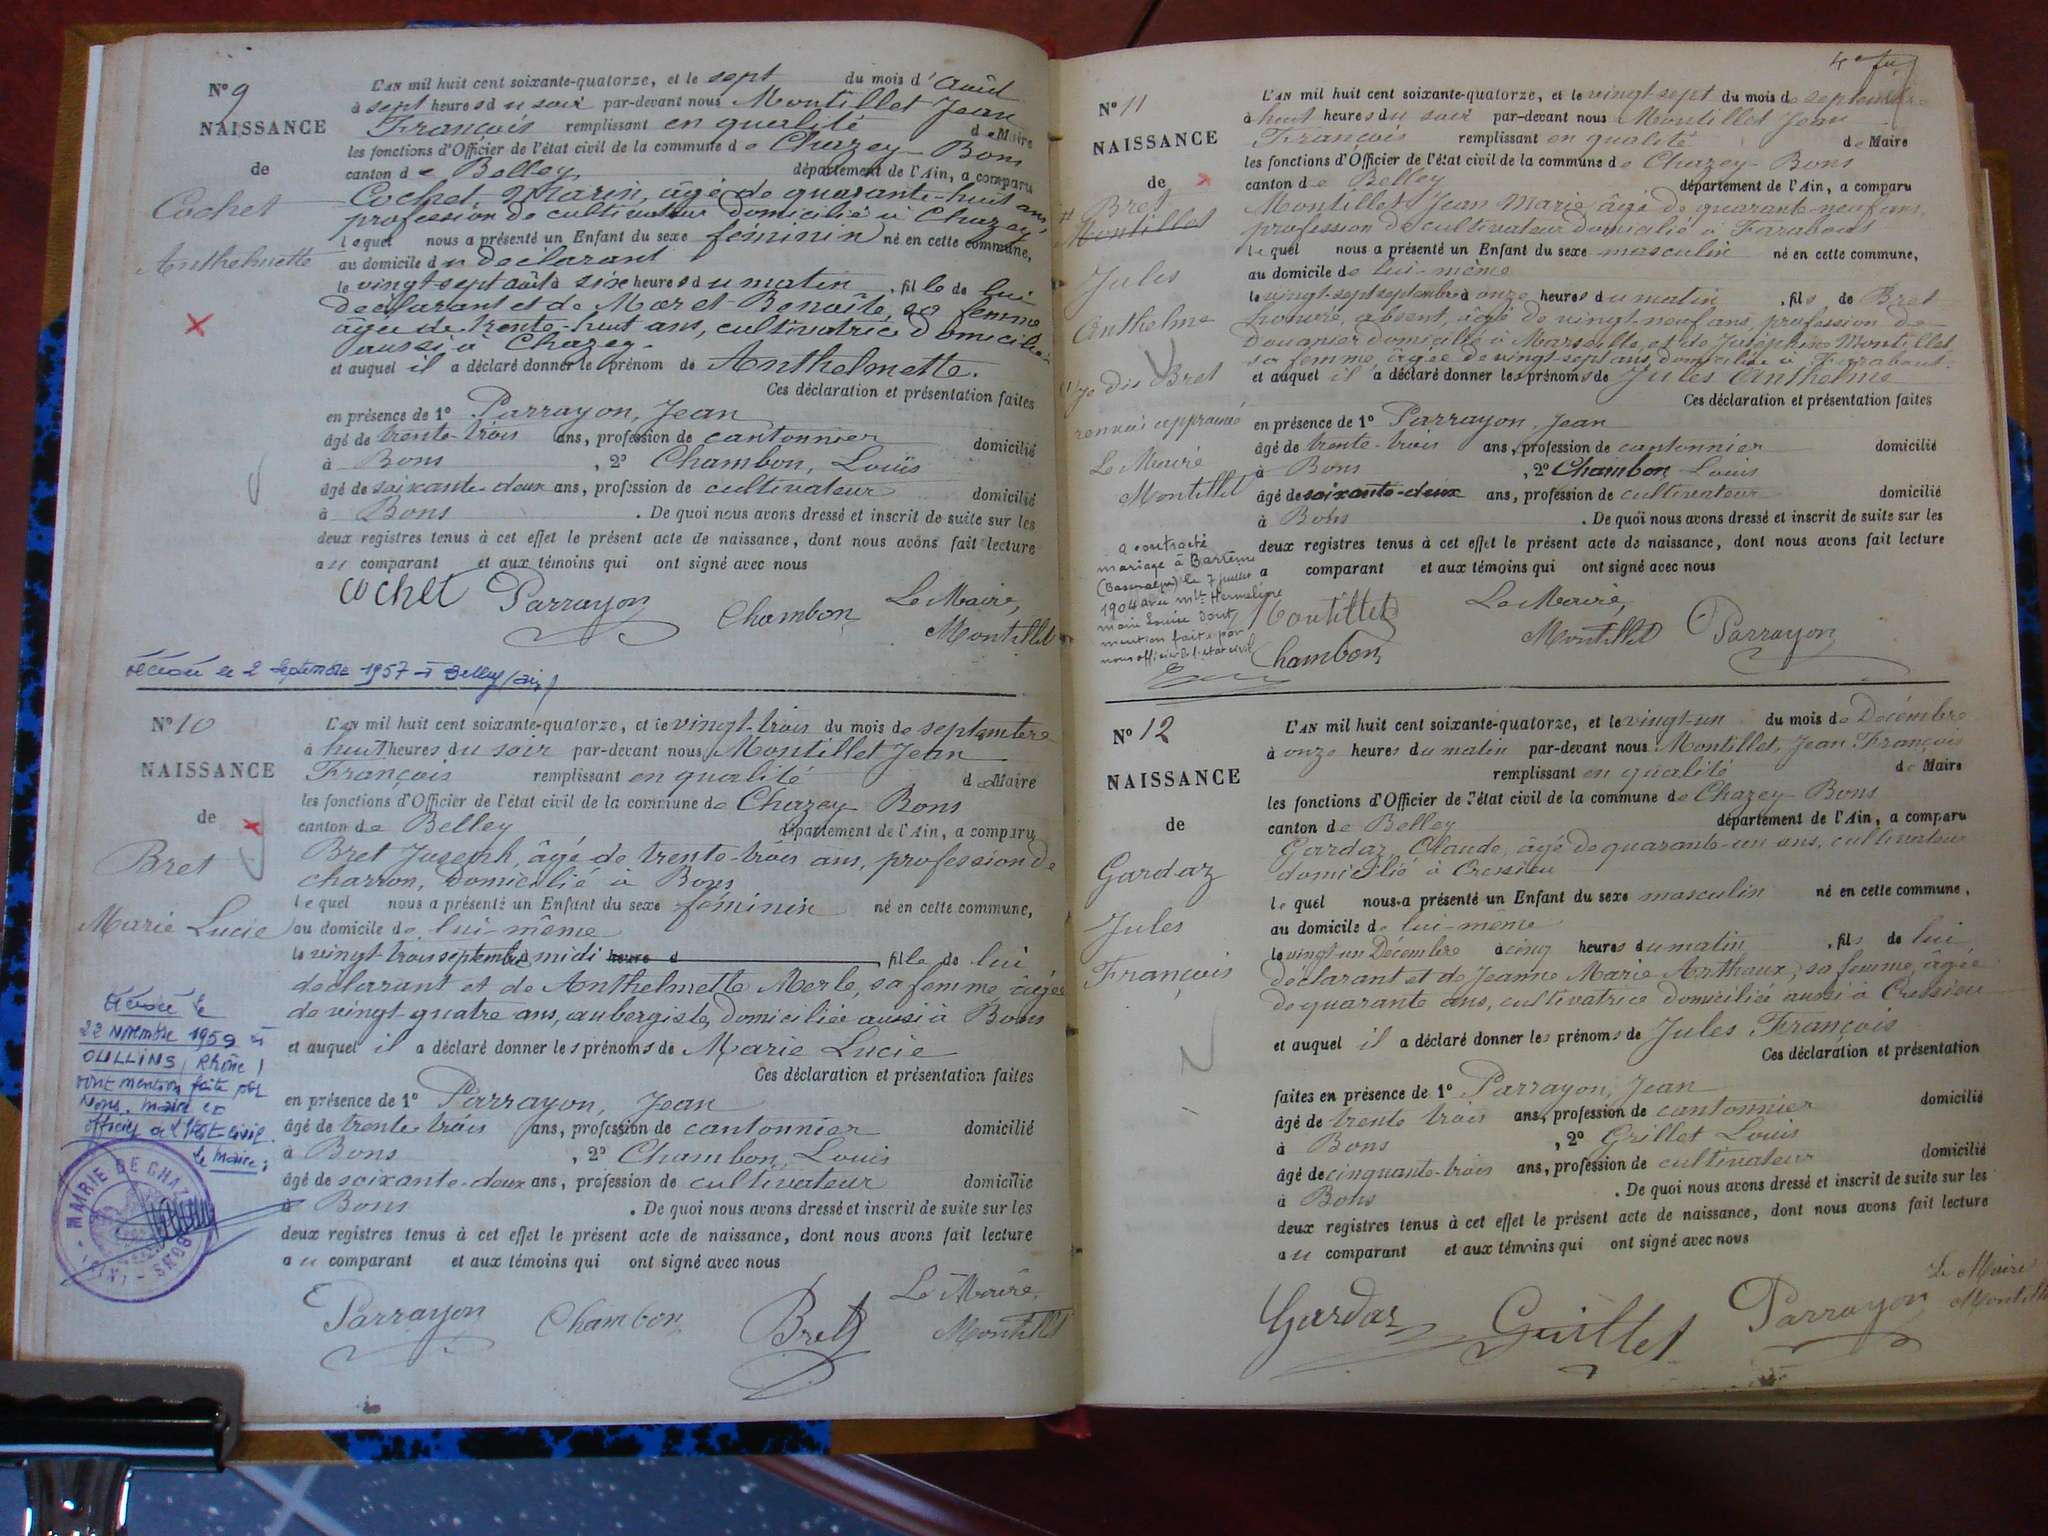 N° 9
NAISSANCE
de
Cochet
Anthelmette
L'AN mil huit cent soixante-quatorze, et le sept du mois d'Août
à sept heures du soir par-devant nous Montillet Jean
François remplissant en qualité de Maire
les fonctions d'Officier de l'état civil de la commune de Chazey-Bons
canton de Belley département de l'Ain, a comparu
Cochet Marin, âgé de quarante-huit ans,
profession de cultivateur domicilié à Chazey,
lequel nous a présenté un Enfant du sexe féminin né en cette commune,
au domicile du declarant
le vingt-sept août à six heures du matin, fille de lui
declarant et de Moret Benoîte, sa femme
âgée de trente-huit ans, cultivatrice domiciliée
aussi à Chazey.
et auquel il a déclaré donner le prénom de Anthelmette.
Ces déclaration et présentation faites
en présence de 1° Parrayon, Jean
âgé de trente-trois ans, profession de cantonnier domicilié
à Bons, 2° Chambon, Louis
âgé de soixante-deux ans, profession de cultivateur domicilié
à Bons. De quoi nous avons dressé et inscrit de suite sur les
deux registres tenus à cet effet le présent acte de naissance, dont nous avons fait lecture
au comparant et aux témoins qui ont signé avec nous
cochet Parrayon Chambon Le Maire,
Montillet
décédée le 2 Septembre 1957 à Belley (Ain)
N° 10
NAISSANCE
de
Bret
Marie Lucie
L'AN mil huit cent soixante-quatorze, et le vingt-trois du mois de septembre
à huit heures du soir par-devant nous Montillet Jean
François remplissant en qualité de Maire
les fonctions d'Officier de l'état civil de la commune de Chazey-Bons
canton de Belley département de l'Ain, a comparu
Bret Joseph, âgé de trente-trois ans, profession de
charron, domicilié à Bons
lequel nous a présenté un Enfant du sexe féminin né en cette commune,
au domicile de lui-même
le vingt-trois septembre à midi heure d, fille de lui
declarant et de Anthelmette Merle, sa femme, âgée
de vingt quatre ans, aubergiste, domiciliée aussi à Bons
et auquel il a déclaré donner les prénoms de Marie Lucie
Ces déclaration et présentation faites
en présence de 1° Parrayon, Jean
âgé de trente trois ans, profession de cantonnier domicilié
à Bons, 2° Chambon, Louis
âgé de soixante-deux ans, profession de cultivateur domicilié
à Bons. De quoi nous avons dressé et inscrit de suite sur les
deux registres tenus à cet effet le présent acte de naissance, dont nous avons fait lecture
au comparant et aux témoins qui ont signé avec nous
Parrayon Chambon Bret Le Maire,
Montillet
Décédée le
22 novembre 1959 à
OULLINS (Rhône)
dont mention faite par
Nous, maire et
officier de l'Etat-civil.
Le Maire:
MAIRIE DE CHAZEY BONS (AIN)
N° 11
NAISSANCE
de
Bret
Montillet
Jules
Anthelme
(1) je dis Bret
renvoi approuvé
Le Maire
Montillet
a contracté
mariage à Barrême
le 7 juillet
1904 avec Mlle
Marie Louise dont
mention faite par
nous officier de l'état civil
L'AN mil huit cent soixante-quatorze, et le vingt-sept du mois de septembre
à huit heures du soir par-devant nous Montillet Jean
François remplissant en qualité de Maire
les fonctions d'Officier de l'état civil de la commune de Chazey-Bons
canton de Belley département de l'Ain, a comparu
Montillet Jean Marie âgé de quarante-neuf ans,
profession de cultivateur domicilié à Farabout
lequel nous a présenté un Enfant du sexe masculin né en cette commune,
au domicile de lui-même
le vingt-sept septembre à onze heures du matin, fils de Bret
honoré, absent, âgé de vingt-neuf ans, profession de
Douanier domicilié à Marseille, et de Joséphine Montillet
sa femme, âgée de vingt-sept ans, domiciliée à Farabout.
et auquel il a déclaré donner les prénoms de Jules Anthelme
Ces déclaration et présentation faites
en présence de 1° Parrayon, Jean
âgé de trente-trois ans, profession de cantonnier domicilié
à Bons, 2° Chambon Louis
âgé de soixante-deux ans, profession de cultivateur domicilié
à Bons. De quoi nous avons dressé et inscrit de suite sur les
deux registres tenus à cet effet le présent acte de naissance, dont nous avons fait lecture
a comparant et aux témoins qui ont signé avec nous
Montillet Le Maire, Parrayon
Chambon Montillet
N° 12
NAISSANCE
de
Gardaz
Jules
François
L'AN mil huit cent soixante-quatorze, et le vingt-un du mois de Décembre
à onze heures du matin par-devant nous Montillet, Jean François
remplissant en qualité de Maire
les fonctions d'Officier de l'état civil de la commune de Chazey-Bons
canton de Belley département de l'Ain, a comparu
Gardaz Claude, âgé de quarante-un ans, cultivateur
domicilié à Cressieu
lequel nous a présenté un Enfant du sexe masculin né en cette commune,
au domicile de lui-même
le vingt-un Décembre à cinq heures du matin, fils de lui
declarant et de Jeanne Marie Arthaux, sa femme, âgée
de quarante ans, cultivatrice domiciliée aussi à Cressieu
et auquel il a déclaré donner les prénoms de Jules François
Ces déclaration et présentation
faites en présence de 1° Parrayon, Jean
âgé de trente trois ans, profession de cantonnier domicilié
à Bons, 2° Grillet Louis
âgé de cinquante-trois ans, profession de cultivateur domicilié
à Bons. De quoi nous avons dressé et inscrit de suite sur les
deux registres tenus à cet effet le présent acte de naissance, dont nous avons fait lecture
au comparant et aux témoins qui ont signé avec nous
Gardaz Guillet Parrayon Le Maire
Montillet